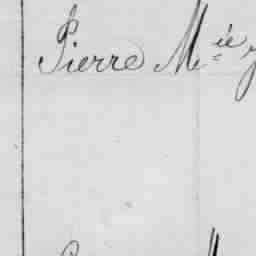 Pierre M.ie